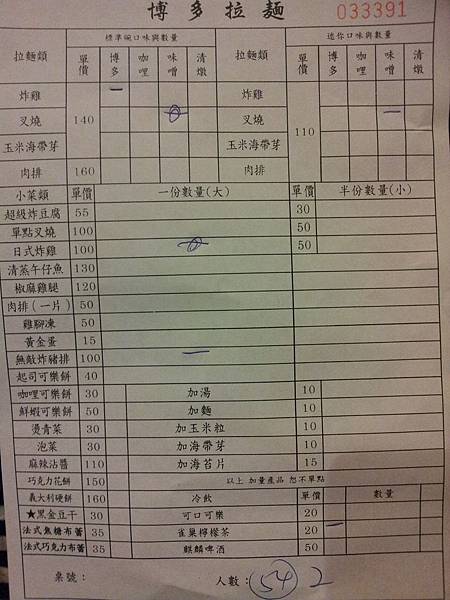 博多拉麵 033391
拉麵類 單價 標準碗口味與數量 拉麵類 單價 迷你口味與數量
博多 咖哩 味噌 清燉 博多 咖哩 味噌 清燉
炸雞 140 一 炸雞 110
叉燒 叉燒 一
玉米海帶芽 玉米海帶芽
肉排 160 肉排
小菜類 單價 一份數量(大) 單價 半份數量(小)
超級炸豆腐 55 30
單點叉燒 100 50
日式炸雞 100 50
清蒸午仔魚 130
椒麻雞腿 120
肉排(一片) 50
雞腳凍 50
黃金蛋 15
無敵炸豬排 100 一
起司可樂餅 40
咖哩可樂餅 30 加湯 10
鮮蝦可樂餅 50 加麵 10
燙青菜 30 加玉米粒 10
泡菜 30 加海帶芽 10
麻辣沾醬 110 加海苔片 15
巧克力花餅 150 以上 加量產品 恕不單點
義大利硬餅 160 冷飲 單價 數量
★黑金豆干 30 可口可樂 20
法式焦糖布蕾 35 雀巢檸檬茶 20 一
法式巧克力布蕾 35 麒麟啤酒 50
桌號： 人數： 54 2